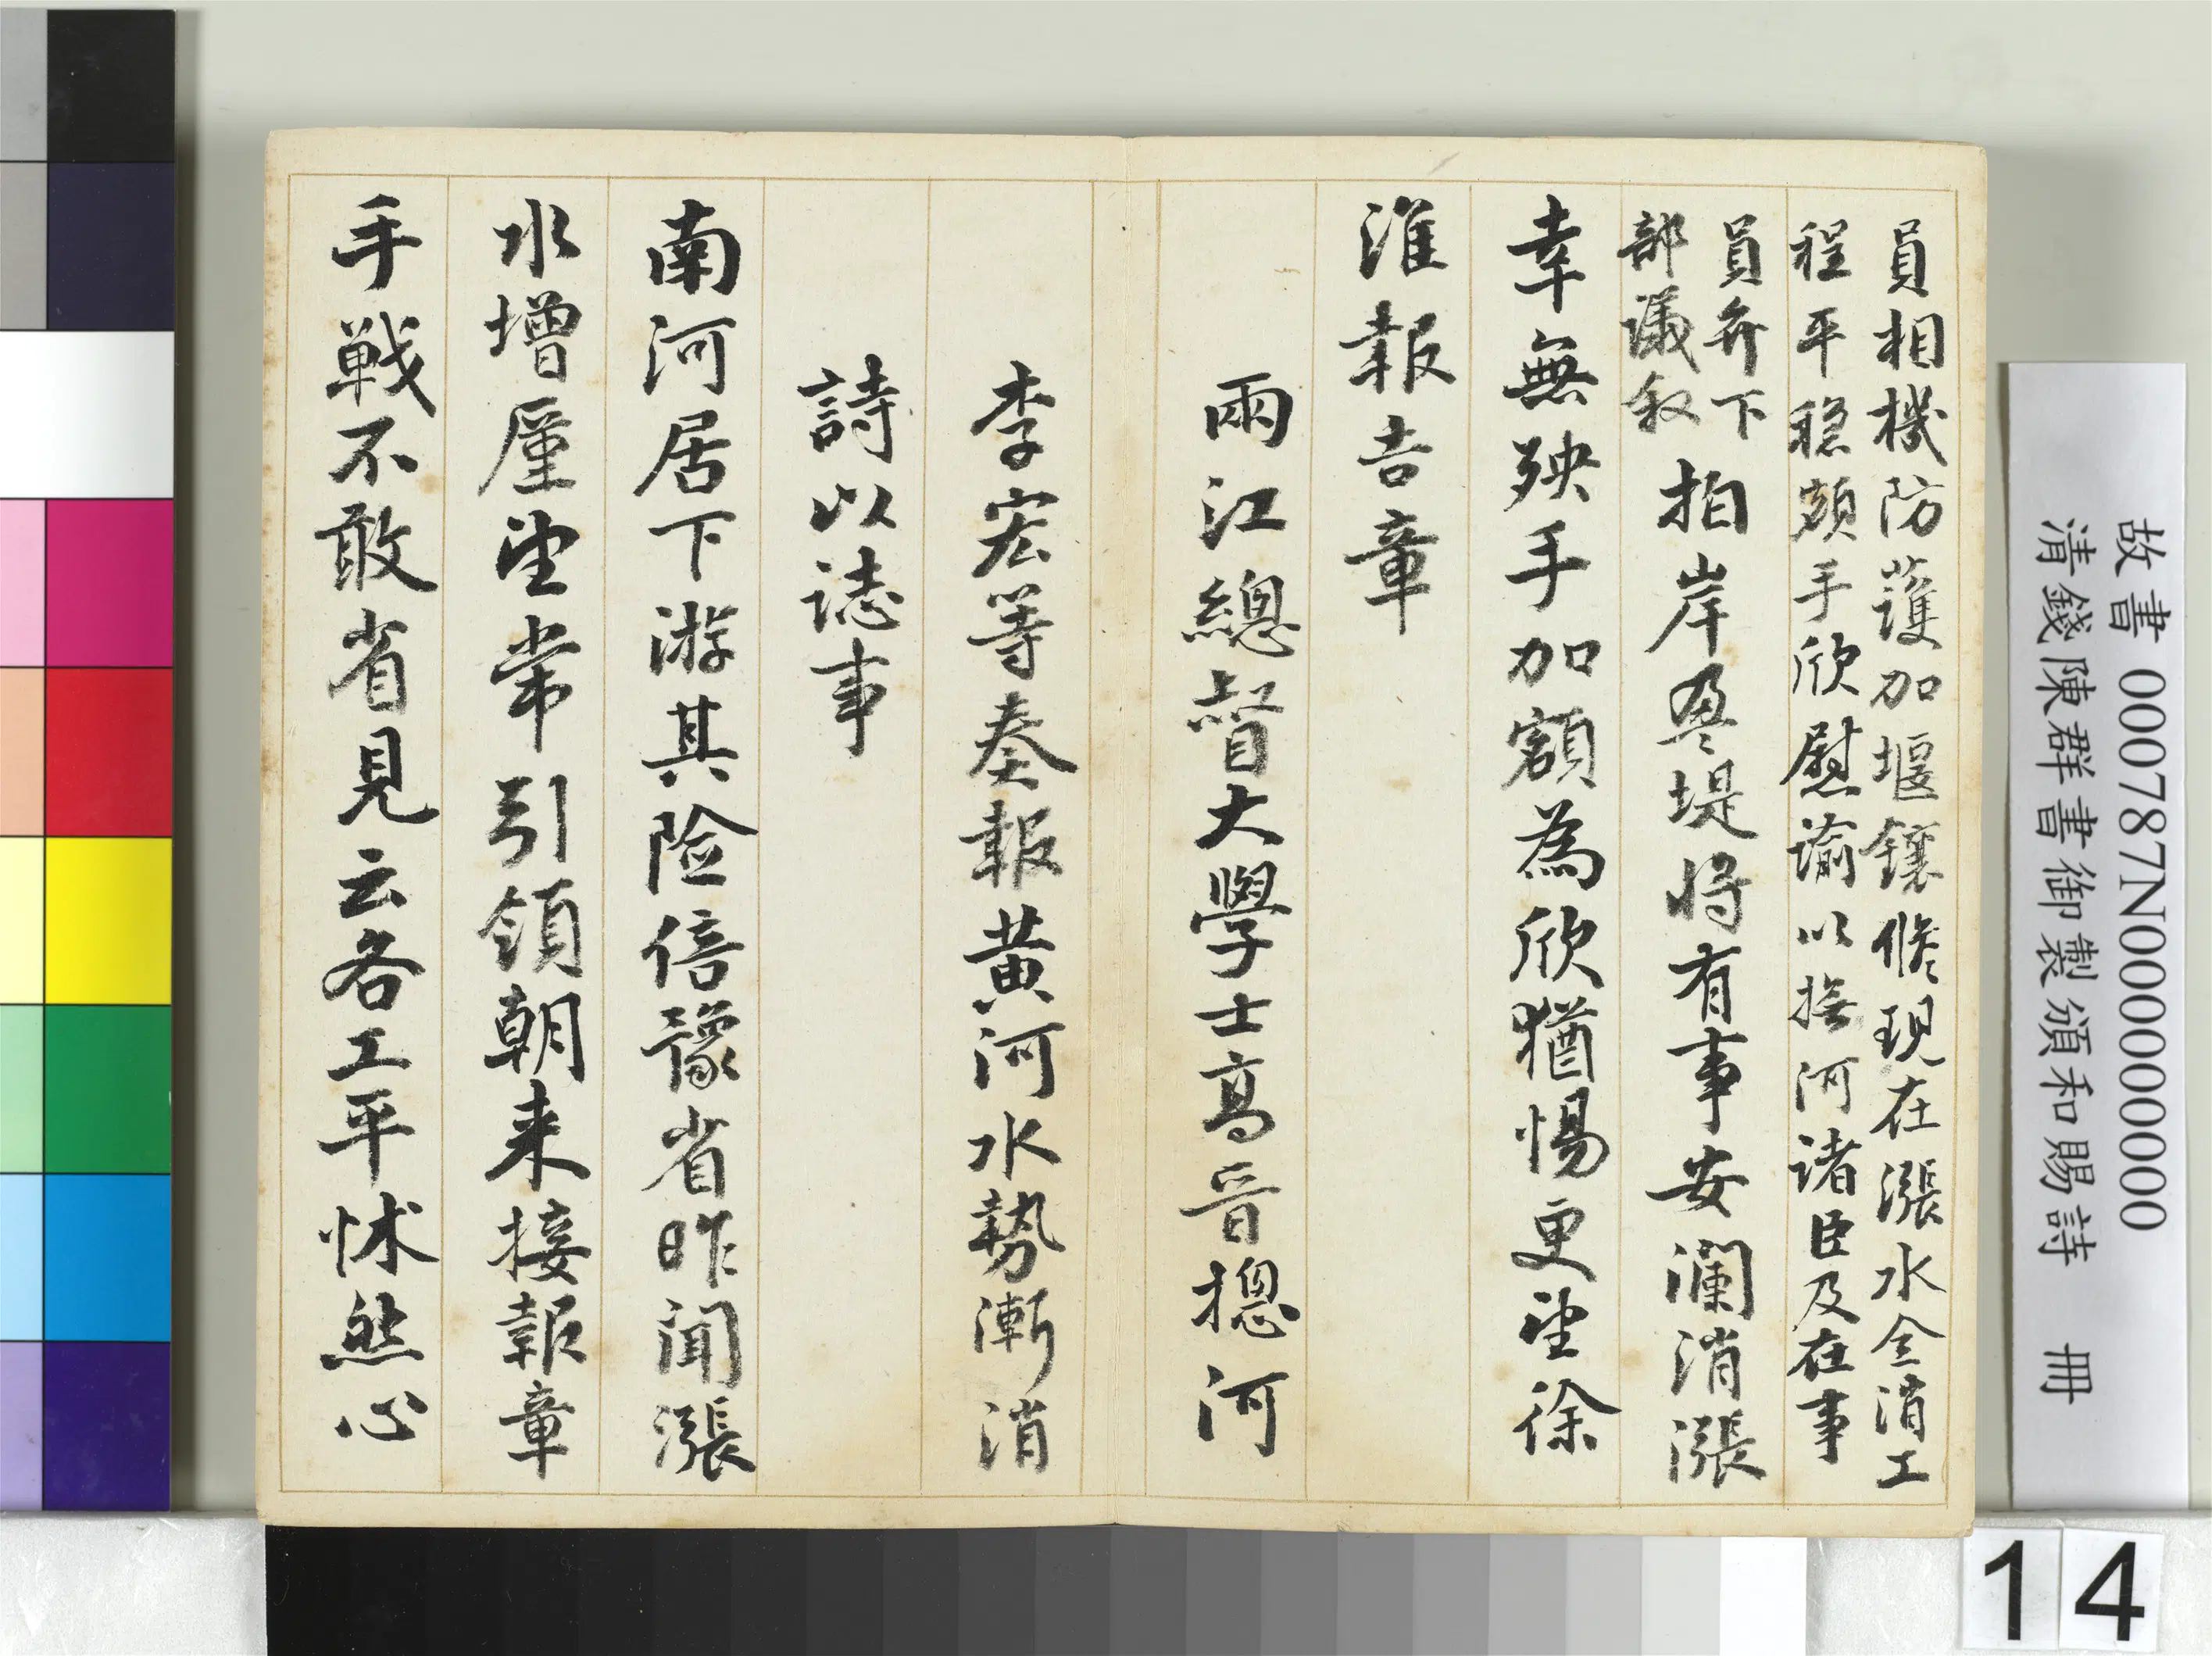 員相機防護加堰鑲修現在漲水全消工
程平穩額手欣慰諭以撫河諸臣及在事
員弁下
部議敘
拍岸盈堤將有事安瀾消漲
幸無殃手加額為欣猶惕更望徐
淮報吉章
兩江總督大學士高晉摠河
李宏等奏報黃河水勢漸消
詩以誌事
南河居下游其險倍豫省昨聞漲
水增廑望常引領朝来接報章
手戰不敢省見云各工平怵然心
故書 000787N000000000
清錢陳群書御製頒和賜詩 冊
14